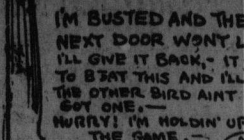 I'M BUSTED AND THE
NEXT DOOR WON'T L
I'LL GIVE IT BACK,- IT
TO BEAT THIS AND I'LL
THE OTHER BIRD AINT
GOT ONE.—
HURRY! I'M HOLDIN' UP
THE GAME.—